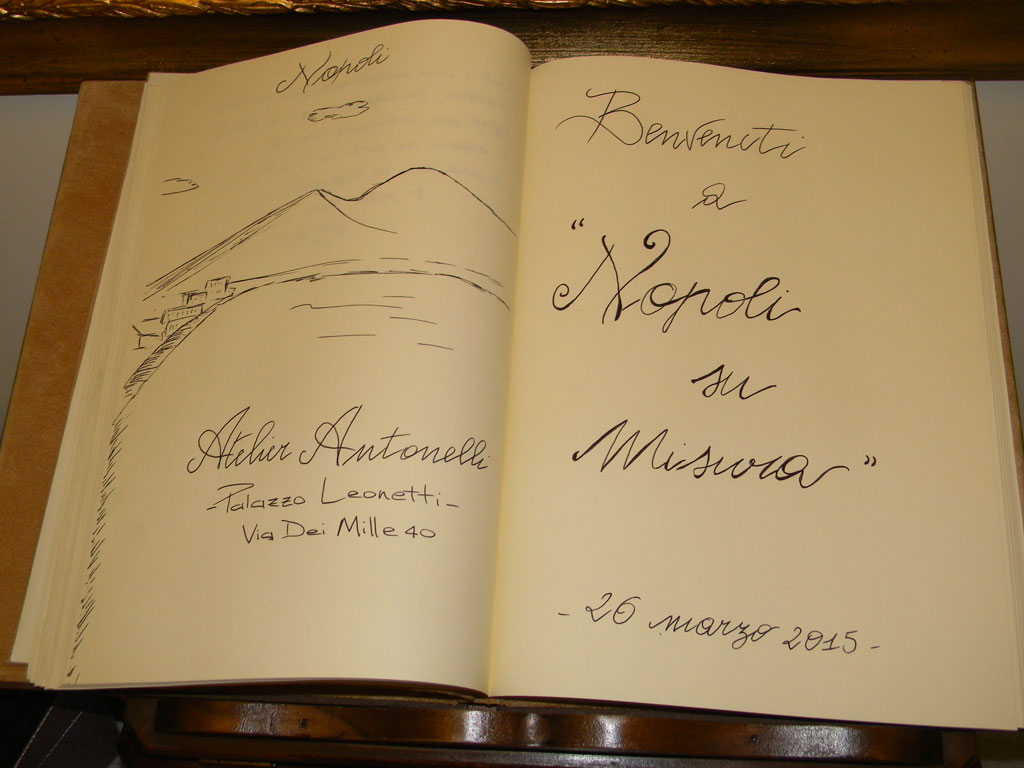 Napoli
Atelier Antonelli
- Palazzo Leonetti -
Via Dei Mille 40
Benvenuti
a
"Napoli
su
Misura"
- 26 marzo 2015 -